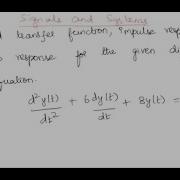 Signals and Systems
transfer function, impulse
response for the given
equation.
d²y(t)/dt² + 6dy(t)/dt + 8y(t) =